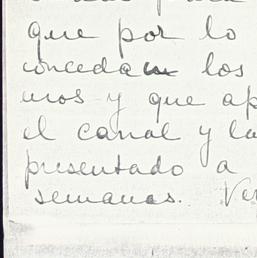 que por lo
concedan los
uros y que ap
el canal y la
presentado a
semanas. Ver